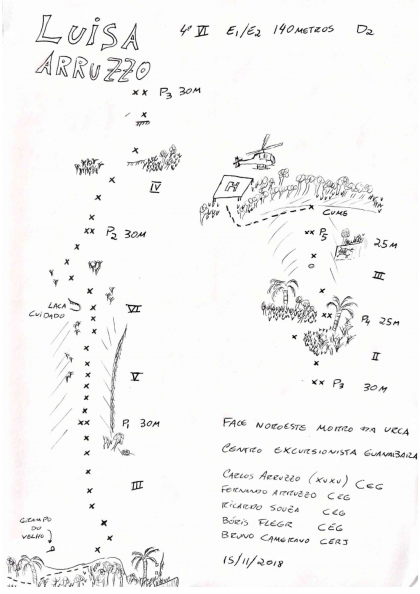 LUISA ARRUZZO
4º VI E1/E2 140 METROS D2
P3 30M
IV
P2 30M
LACA CUIDADO
VI
V
P1 30M
III
GRAMPO DO VELHO
H
CUME
P5
25M
III
P4 25M
II
P3 30M
FACE NOROESTE MORRO DA URCA
CENTRO EXCURSIONISTA GUANABARA
CARLOS ARRUZZO (XUXU) CEG
FERNANDO ARRUZZO CEG
RICARDO SOUZA CEG
BÓRIS FLEGR CEG
BRUNO CAMERANO CERJ
15/11/2018